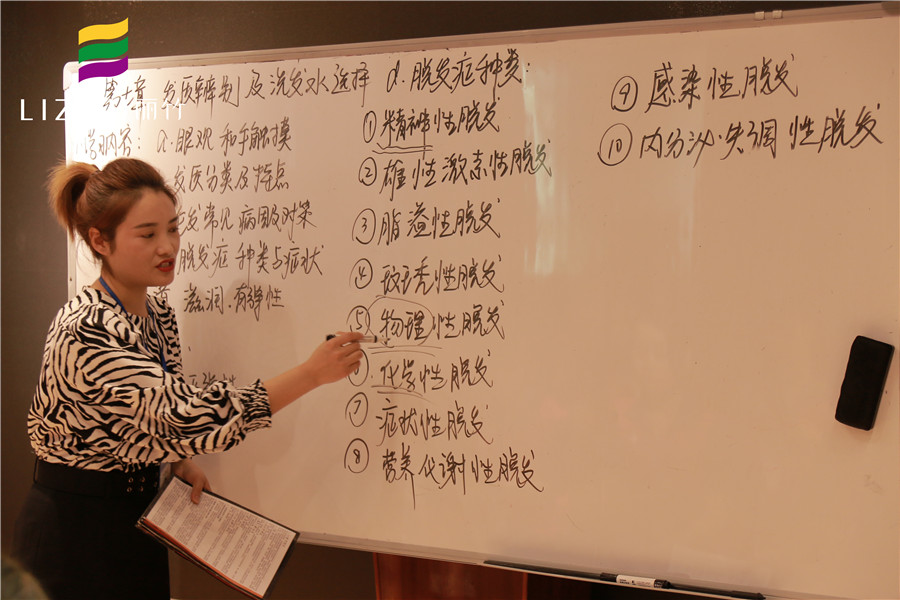 LIZ
丽竹
发医辨别及洗发水选择
学习内容：a.眼观和手触摸
发医分类及特点
发常见病因及对策
脱发症种类与症状
滋润.有弹性
d.脱发症种类：
①精神性脱发
②雄性激素性脱发
③脂溢性脱发
④斑秃性脱发
⑤物理性脱发
⑥化学性脱发
⑦症状性脱发
⑧营养代谢性脱发
⑨感染性脱发
⑩内分泌失调性脱发